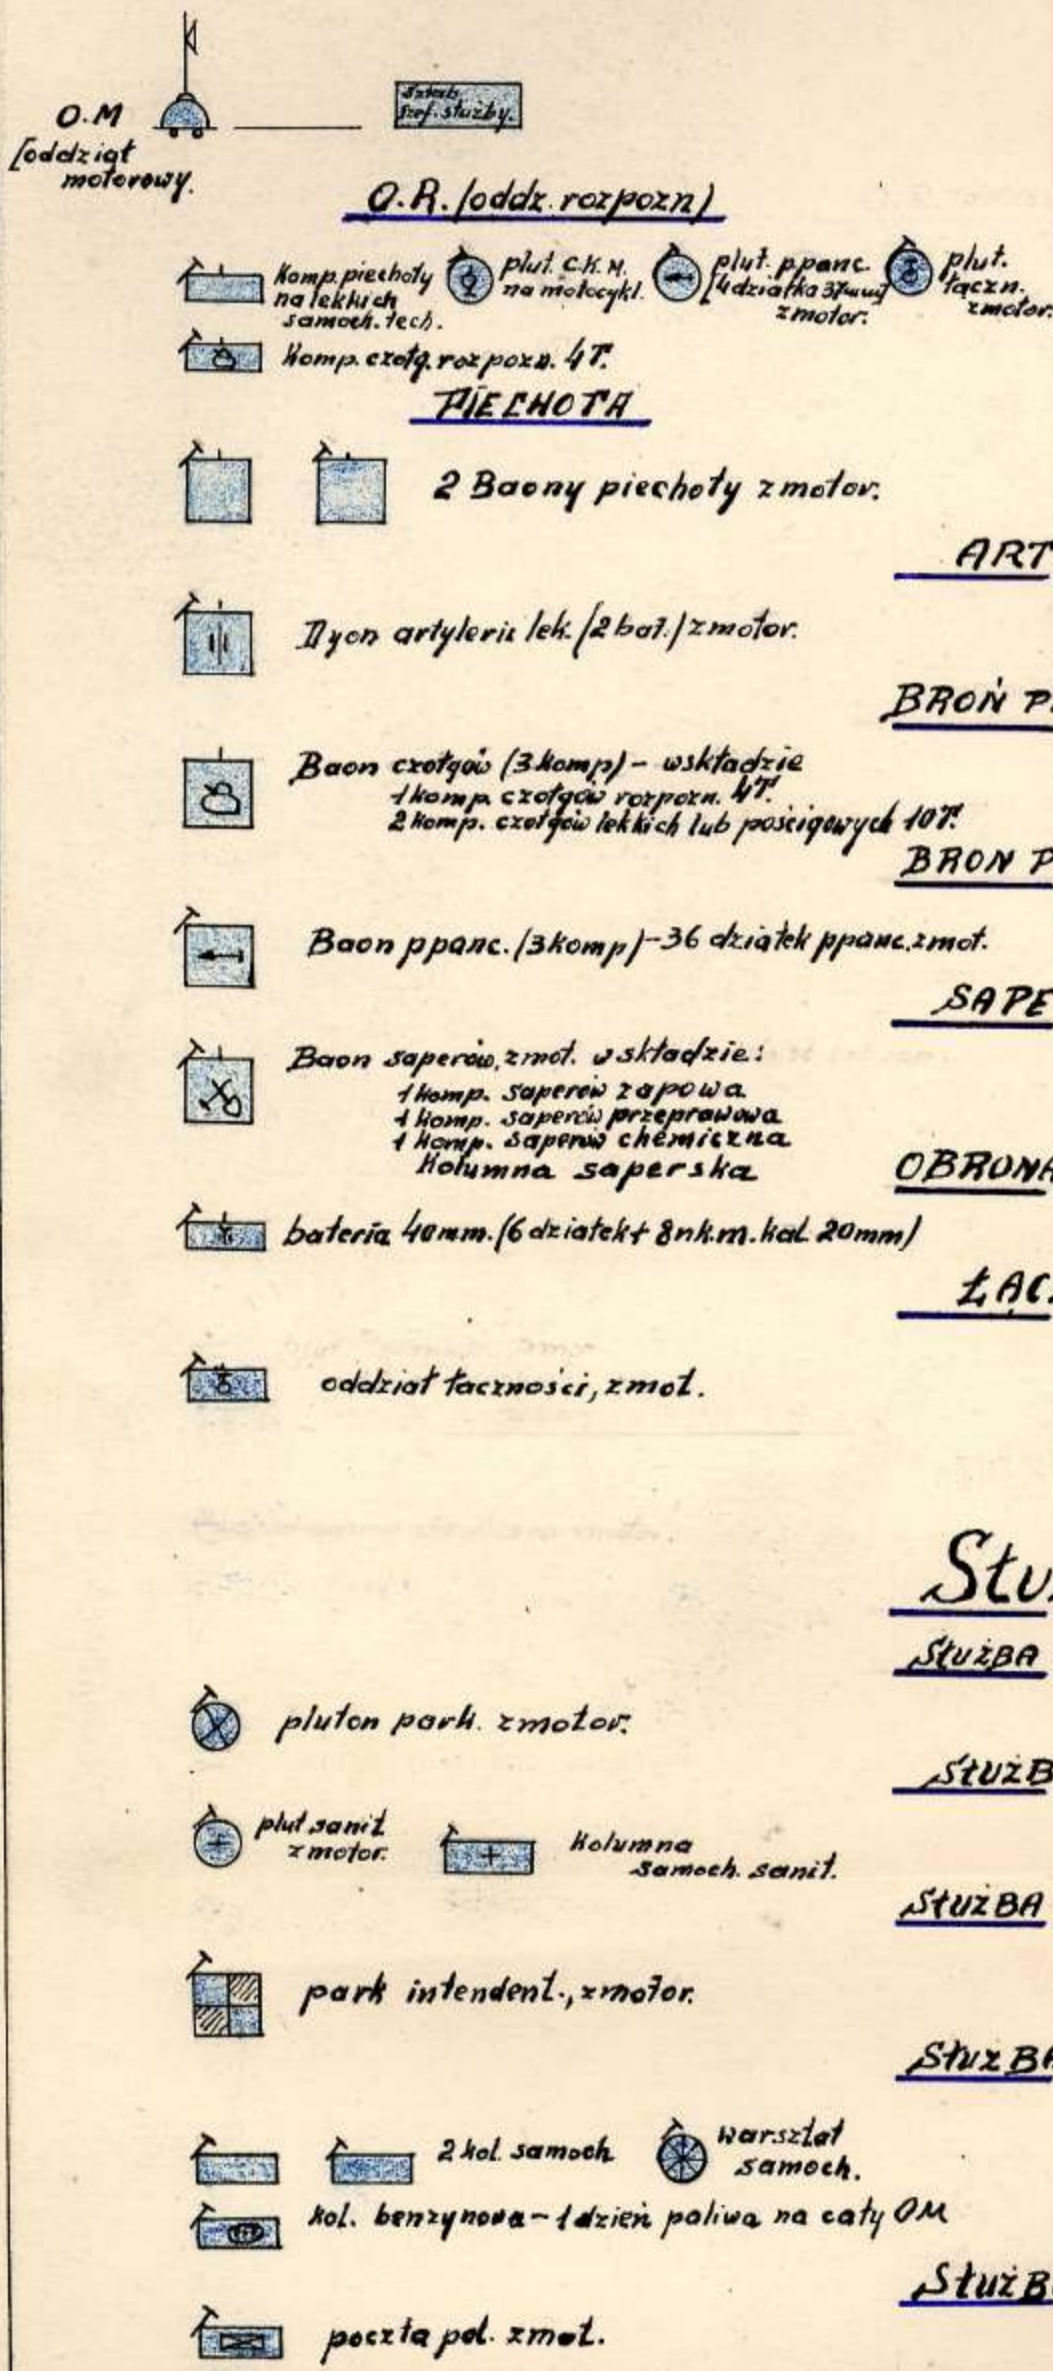 O.M
[oddział
motorowy.
Sztab.
szef. służby.
O.R. (oddz. rozpozn)
Komp. piechoty
na lekkich
samoch. tech.
plut. C.K.M.
na motocykl.
plut. ppanc.
[4 działka 37mm]
zmotor.
plut.
łączn.
zmotor.
Komp. czołg. rozpozn. 4T.
PIECHOTA
2 Baony piechoty zmotor.
ART
Dyon artylerii lek. (2 bat.) zmotor.
BROŃ P
Baon czołgów (3 komp) - wskładzie
1 komp. czołgów rozpozn. 4T.
2 komp. czołgów lekkich lub pościgowych 10T.
BRON P
Baon ppanc. (3 komp) - 36 działek ppanc. zmot.
SAPE
Baon saperów, zmot. w składzie:
1 komp. saperów zapowa
1 komp. saperów przeprawowa
1 komp. saperów chemiczna
Kolumna saperska
OBRONA
bateria 40mm. (6 działek + 8 nk.m. kal. 20mm)
ŁĄC
oddział łaczności, zmot.
Słu
SŁUŻBA
pluton park. zmotor.
SŁUŻB
plut. sanit
zmotor.
Kolumna
samoch. sanit.
SŁUŻBA
park intendent., zmotor.
SŁUŻBA
2 kol. samoch
warsztat
samoch.
kol. benzynowa - 1 dzień paliwa na cały OM
SŁUŻB
poczta pol. zmot.